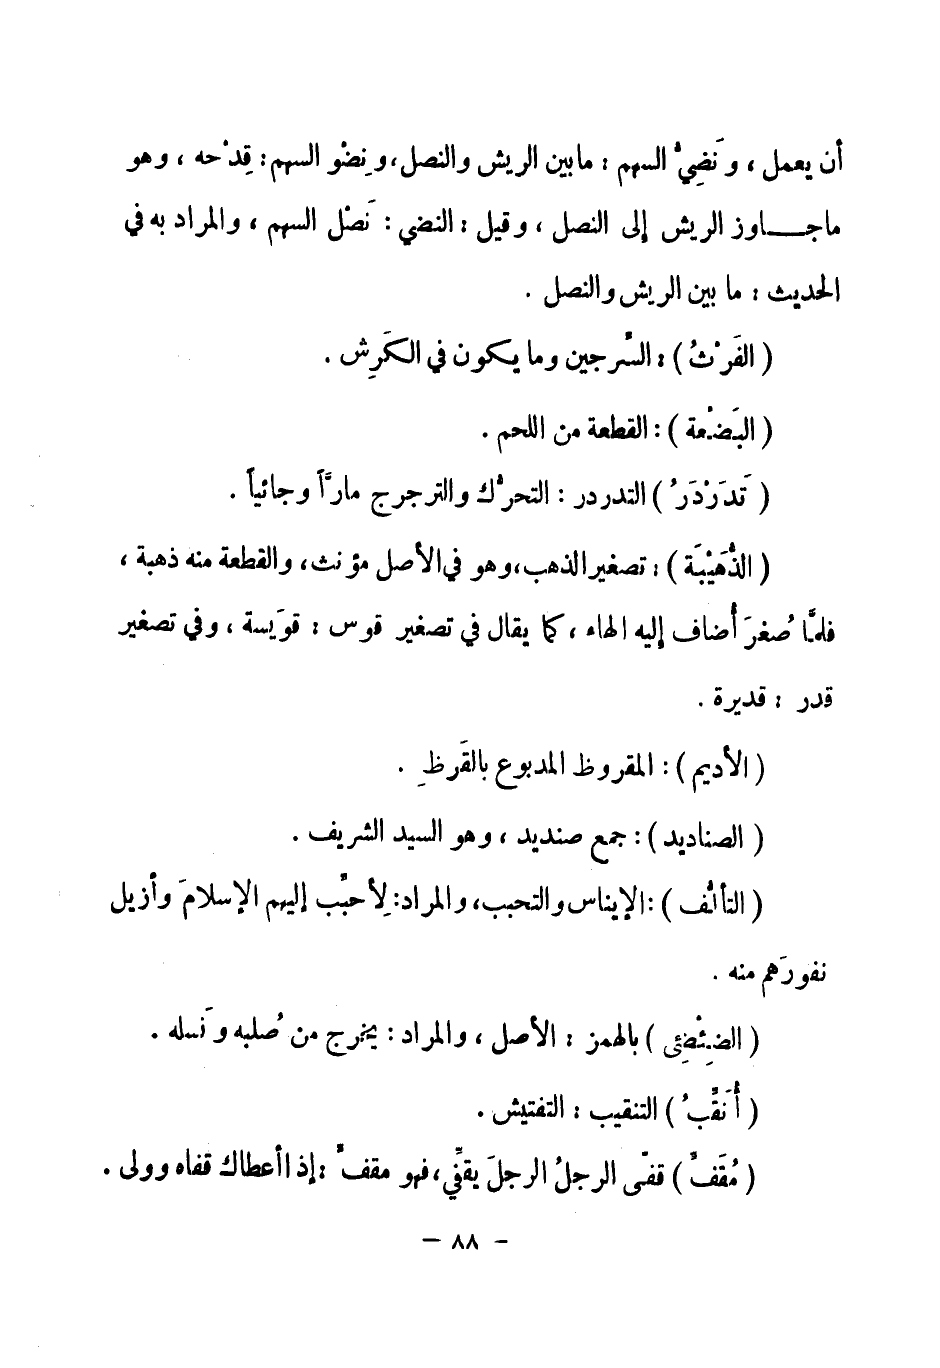 أن يعمل ، و نَضِيُّ السهم : مابين الريش والنصل،ونِضْو السهم: قِدْحه ، وهو
ماجـــاوز الريش إلى النصل ، وقيل : النضي : نَصْل السهم ، والمراد به في
الحديث : ما بين الريش والنصل .
( الفَرْثُ ) : السِّرجين وما يكون في الكَرِش .
( البَضْعة ) : القطعة من اللحم .
( تَدَرْدَرُ ) التدردر : التحرُّك والترجرج مارَّاً وجائياً .
( الذُّهَيْبَة ) : تصغير الذهب،وهو في الأصل مؤنث، والقطعة منه ذهبة ،
فلمَّا صُغِّرَ أُضاف إليه الهاء ، كما يقال في تصغير قوس : قوَيسة ، وفي تصغير
قدر : قديرة .
( الأديم ) : المقروظ المدبوع بالقَرظِ .
( الصناديد ) : جمع صنديد ، وهو السيد الشريف .
( التألُّف ) :الإيناس والتحبب، والمراد: لِأحبِّب إليهم الإسلامَ وأزيل
نفورَهم منه .
( الضِئْضِئ ) بالهمز : الأصل ، والمراد : يخرج من صُلبه ونَسله .
( أُنَقِّبُ ) التنقيب : التفتيش .
( مُقَفٍّ ) قفّى الرجلُ الرجلَ يقفِّي،فهو مقفٍّ :إذا أعطاك قفاه وولى .
- ٨٨ -